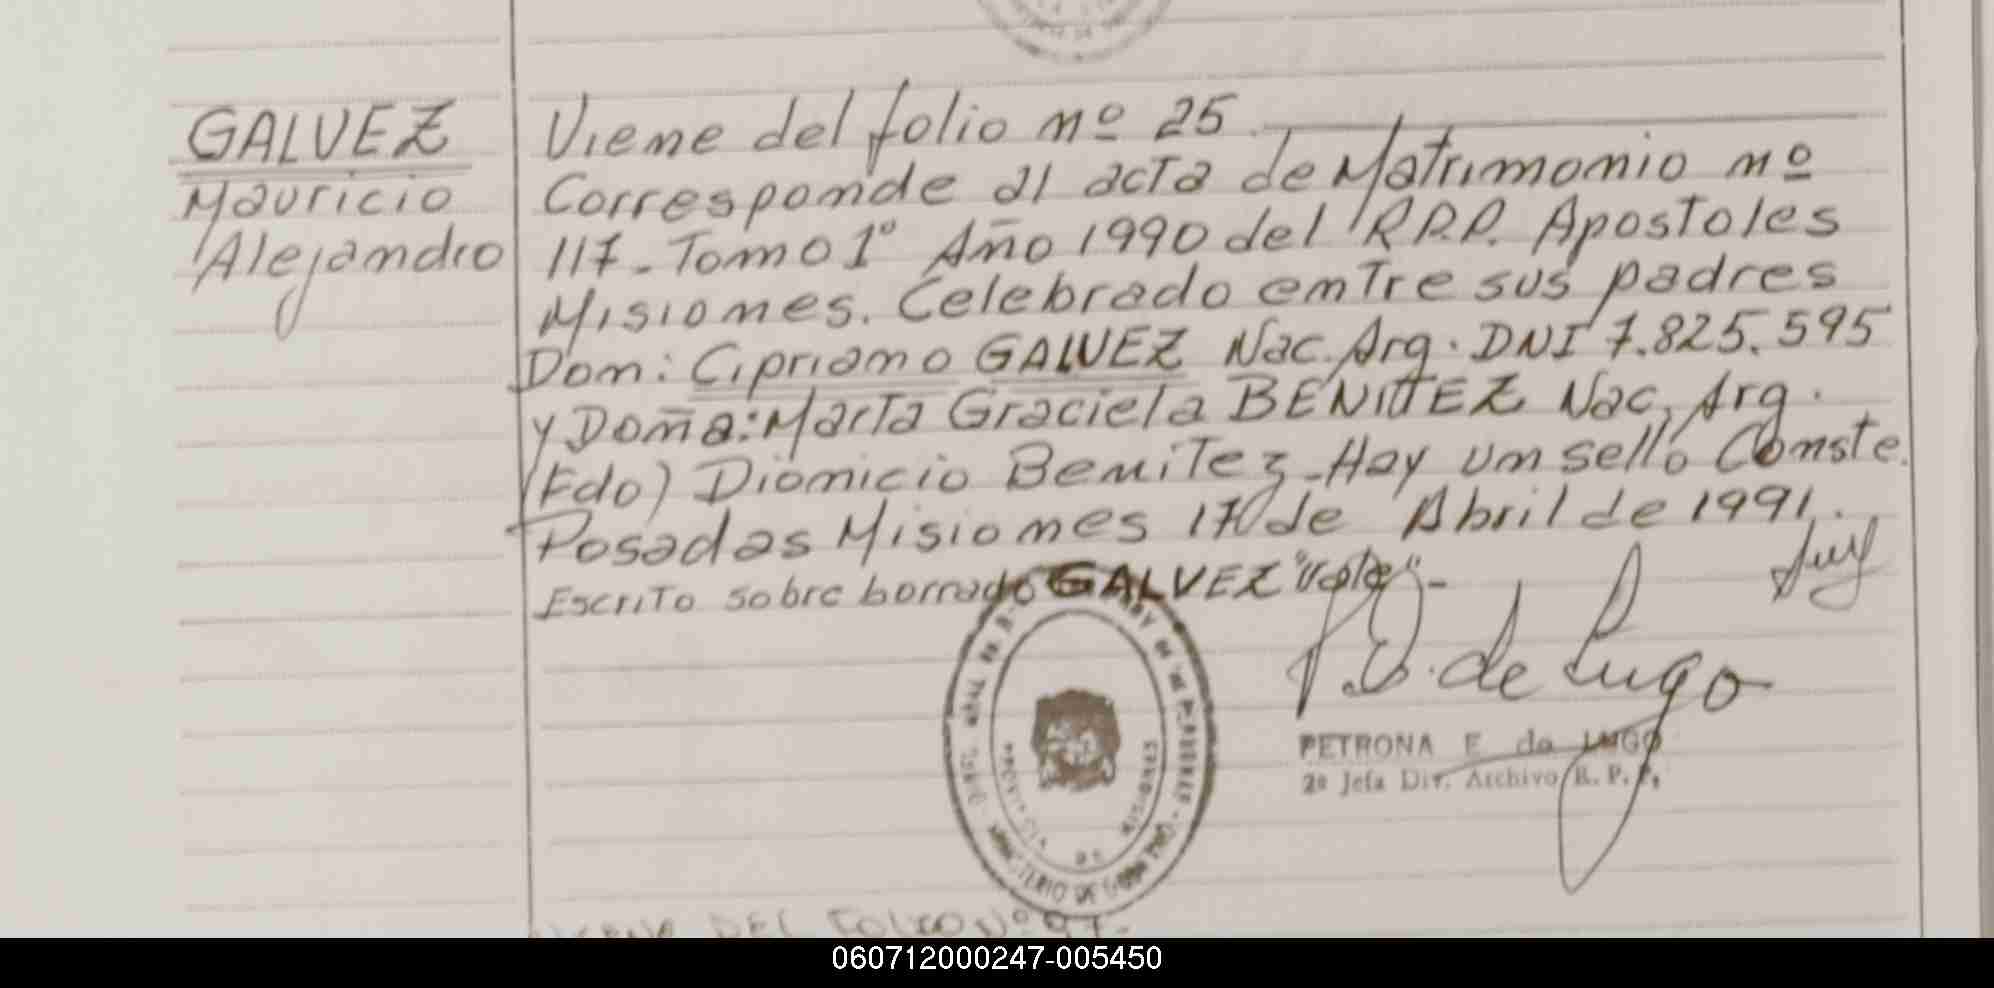 GALVEZ
Mauricio
Alejandro
Viene del folio nº 25
Corresponde al acta de Matrimonio nº
117 - Tomo 1º Año 1990 del R.P.P. Apostoles
Misiones. Celebrado entre sus padres
Don: Cipriano GALVEZ Nac. Arg. DNI 7.825.595
y Doña: Marta Graciela BENITEZ Nac. Arg.
(Fdo) Dionicio Benitez - Hay un sello Conste.
Posadas Misiones 17 de Abril de 1991.
Escrito sobre borrado GALVEZ "Vale" -
de Lugo
PETRONA E de LUGO
2º Jefa Div. Archivo R. P. P.
PROVINCIA DE MISIONES
MINISTERIO DE GOBIERNO
DEL FOLIO Nº 97.
060712000247-005450